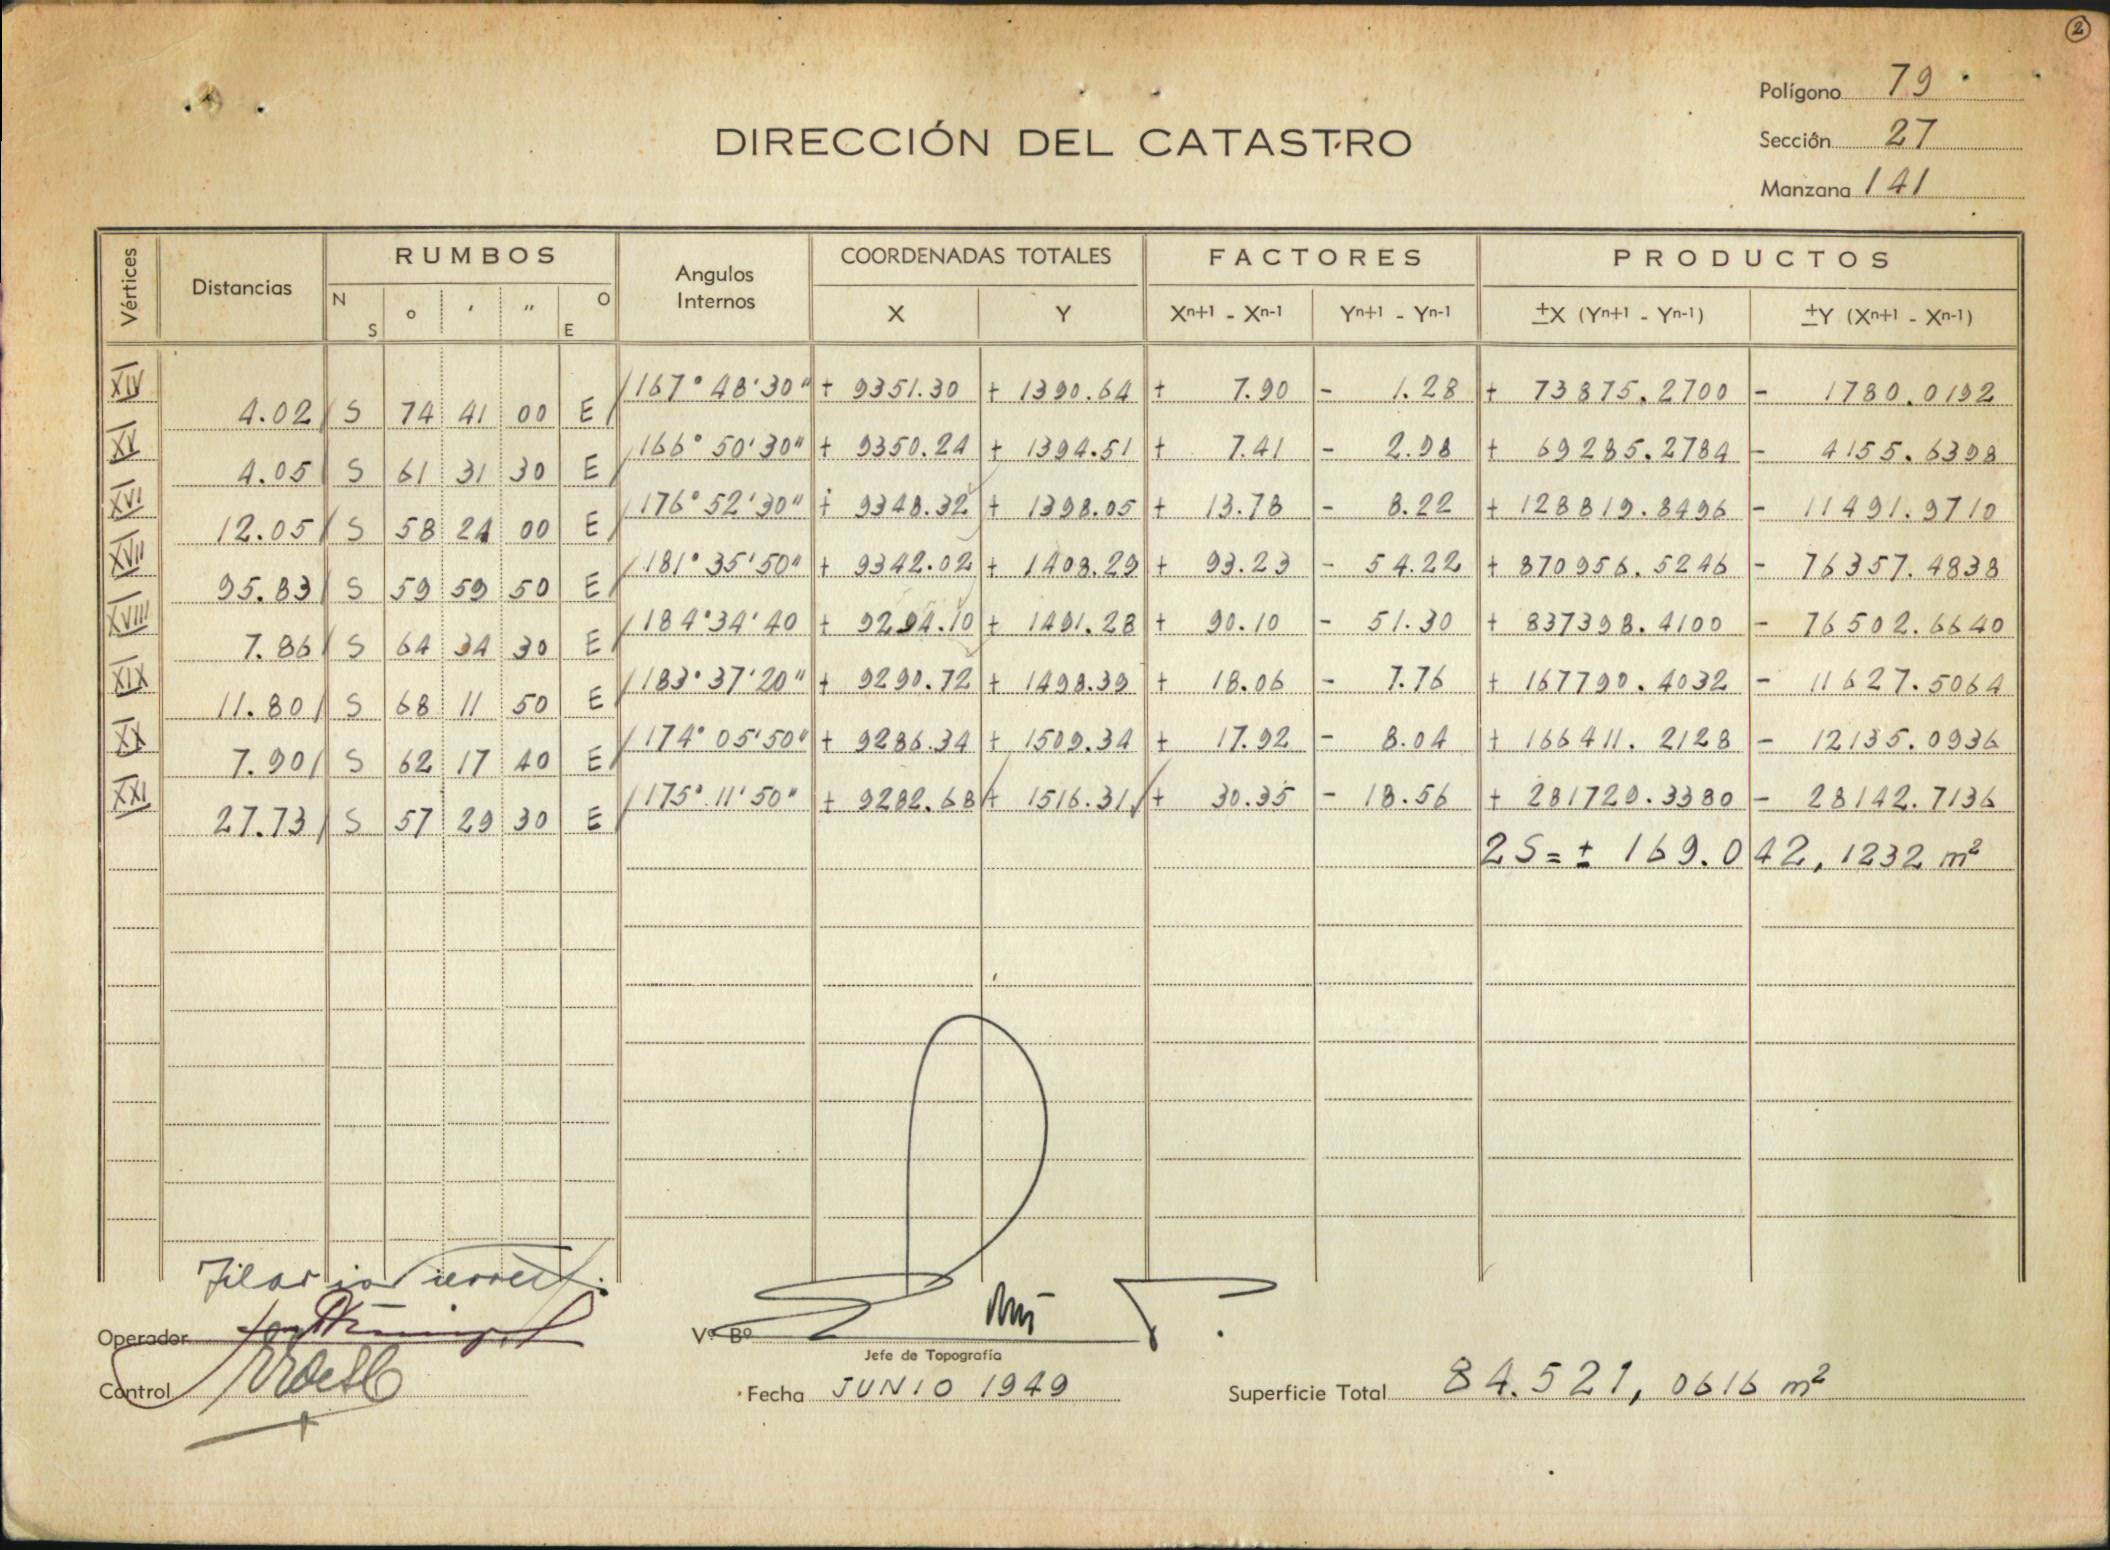 2
Polígono 79
DIRECCIÓN DEL CATASTRO
Sección 27
Manzana 141
Vértices Distancias RUMBOS Angulos Internos COORDENADAS TOTALES FACTORES PRODUCTOS
N S ° ' " O E X Y Xn+1 - Xn-1 Yn+1 - Yn-1 ±X (Yn+1 - Yn-1) ±Y (Xn+1 - Xn-1)
XIV 167° 48' 30" + 9351.30 + 1390.64 + 7.90 - 1.28 + 73875.2700 - 1780.0192
4.02 S 74 41 00 E
XV 166° 50' 30" + 9350.24 + 1394.51 + 7.41 - 2.98 + 69285.2784 - 4155.6398
4.05 S 61 31 30 E
XVI 176° 52' 30" + 9348.32 + 1398.05 + 13.78 - 8.22 + 128819.8496 - 11491.9710
12.05 S 58 24 00 E
XVII 181° 35' 50" + 9342.02 + 1408.29 + 93.23 - 54.22 + 870956.5246 - 76357.4838
95.83 S 59 59 50 E
XVIII 184° 34' 40 + 9294.10 + 1491.28 + 90.10 - 51.30 + 837398.4100 - 76502.6640
7.86 S 64 34 30 E
XIX 183° 37' 20" + 9290.72 + 1498.39 + 18.06 - 7.76 + 167790.4032 - 11627.5064
11.80 S 68 11 50 E
XX 174° 05' 50" + 9286.34 + 1509.34 + 17.92 - 8.04 + 166411.2128 - 12135.0936
7.90 S 62 17 40 E
XXI 175° 11' 50" + 9282.68 + 1516.31 + 30.35 - 18.56 + 281729.3380 - 28142.7136
27.73 S 57 29 30 E
2S = ± 169.042,1232 m²
Operador
Vº Bº
Jefe de Topografía
Control
Fecha JUNIO 1949
Superficie Total 84.521,0616 m²